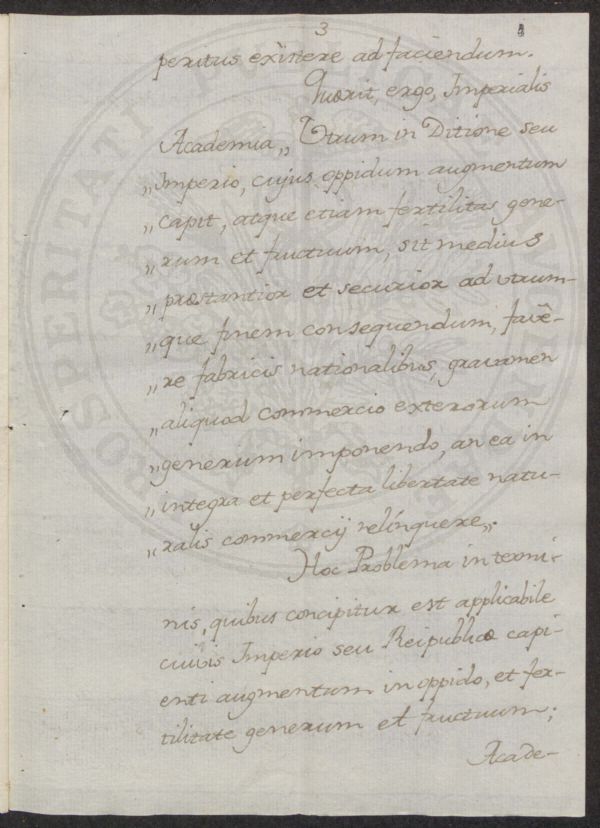 3
peritus existere ad faciendum.
Quærit, ergo, Imperialis
Academia „ Utrum in Ditione seu
„Imperio, cujus oppidum augmentum
„capit, atque etiam fertilitas gene-
„rum et fructuum, sit medius
„præstantior et securior ad utrum-
„que finem consequendum, favê-
„re fabricis nationalibus, gravamen
„aliquod commercio exterorum
„generum imponendo, an ea in
„integra et perfecta libertate natu-
„ralis commercij relinquere„.
Hoc Problema in termi-
nis, quibus concipitur est applicabile
cuivis Imperio seu Reipublicæ capi-
enti augmentum in oppido, et fer-
tilitate generum et fructuum;
Acade-
PROSPERITATI PUBLICAE